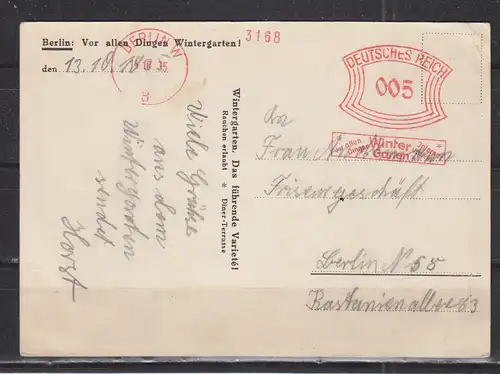 Berlin: Vor allen Dingen Wintergarten!
den 13.10.
BERLIN W
35
8
3168
DEUTSCHES REICH
005
Vor allen Dingen
Winter-
Garten
Wintergarten. Das führende Varieté!
Rauchen erlaubt * Diner-Terrasse
Viele Grüße
aus dem
Wintergarten
sendet
Horst
An
Frau
Frisergeschäft
Berlin N 58
Kastanienallee 63